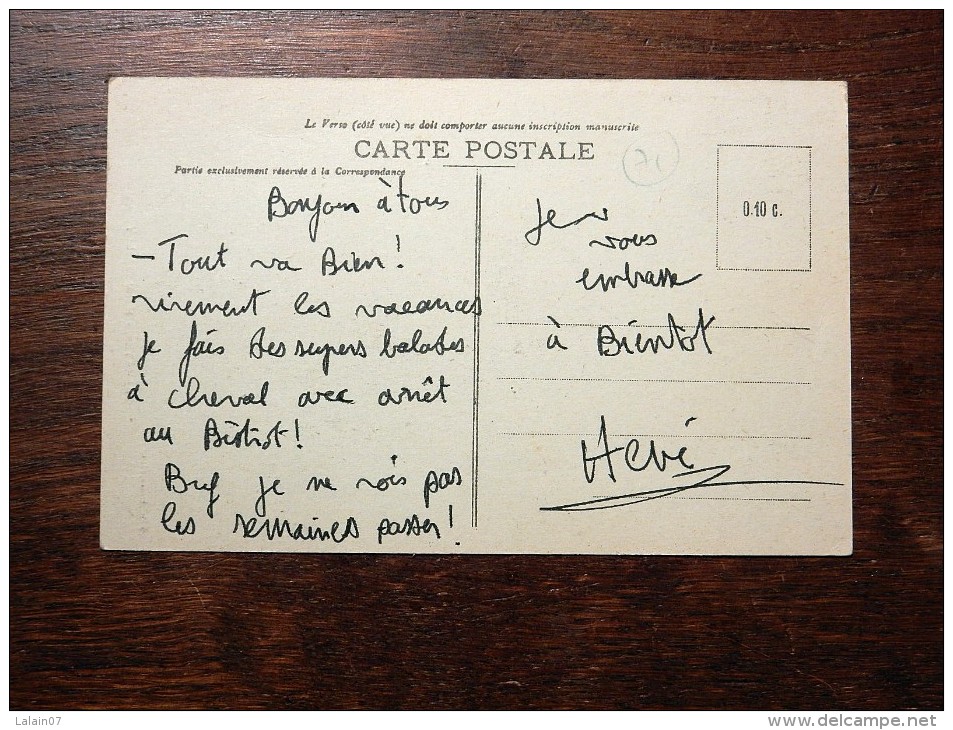 Le Verso (côté vue) ne doit comporter aucune inscription manuscrite
CARTE POSTALE
Partie exclusivement réservée à la Correspondance
0.10 c.
71
Bonjour à tous
- Tout va Bien !
vivement les vacances
je fais des supers balades
à cheval avec arrêt
au Bistrot !
Bref je ne vois pas
les semaines passer !
Je
vous
embrasse
à Bientôt
Hervé
Lalain07
www.delcampe.net